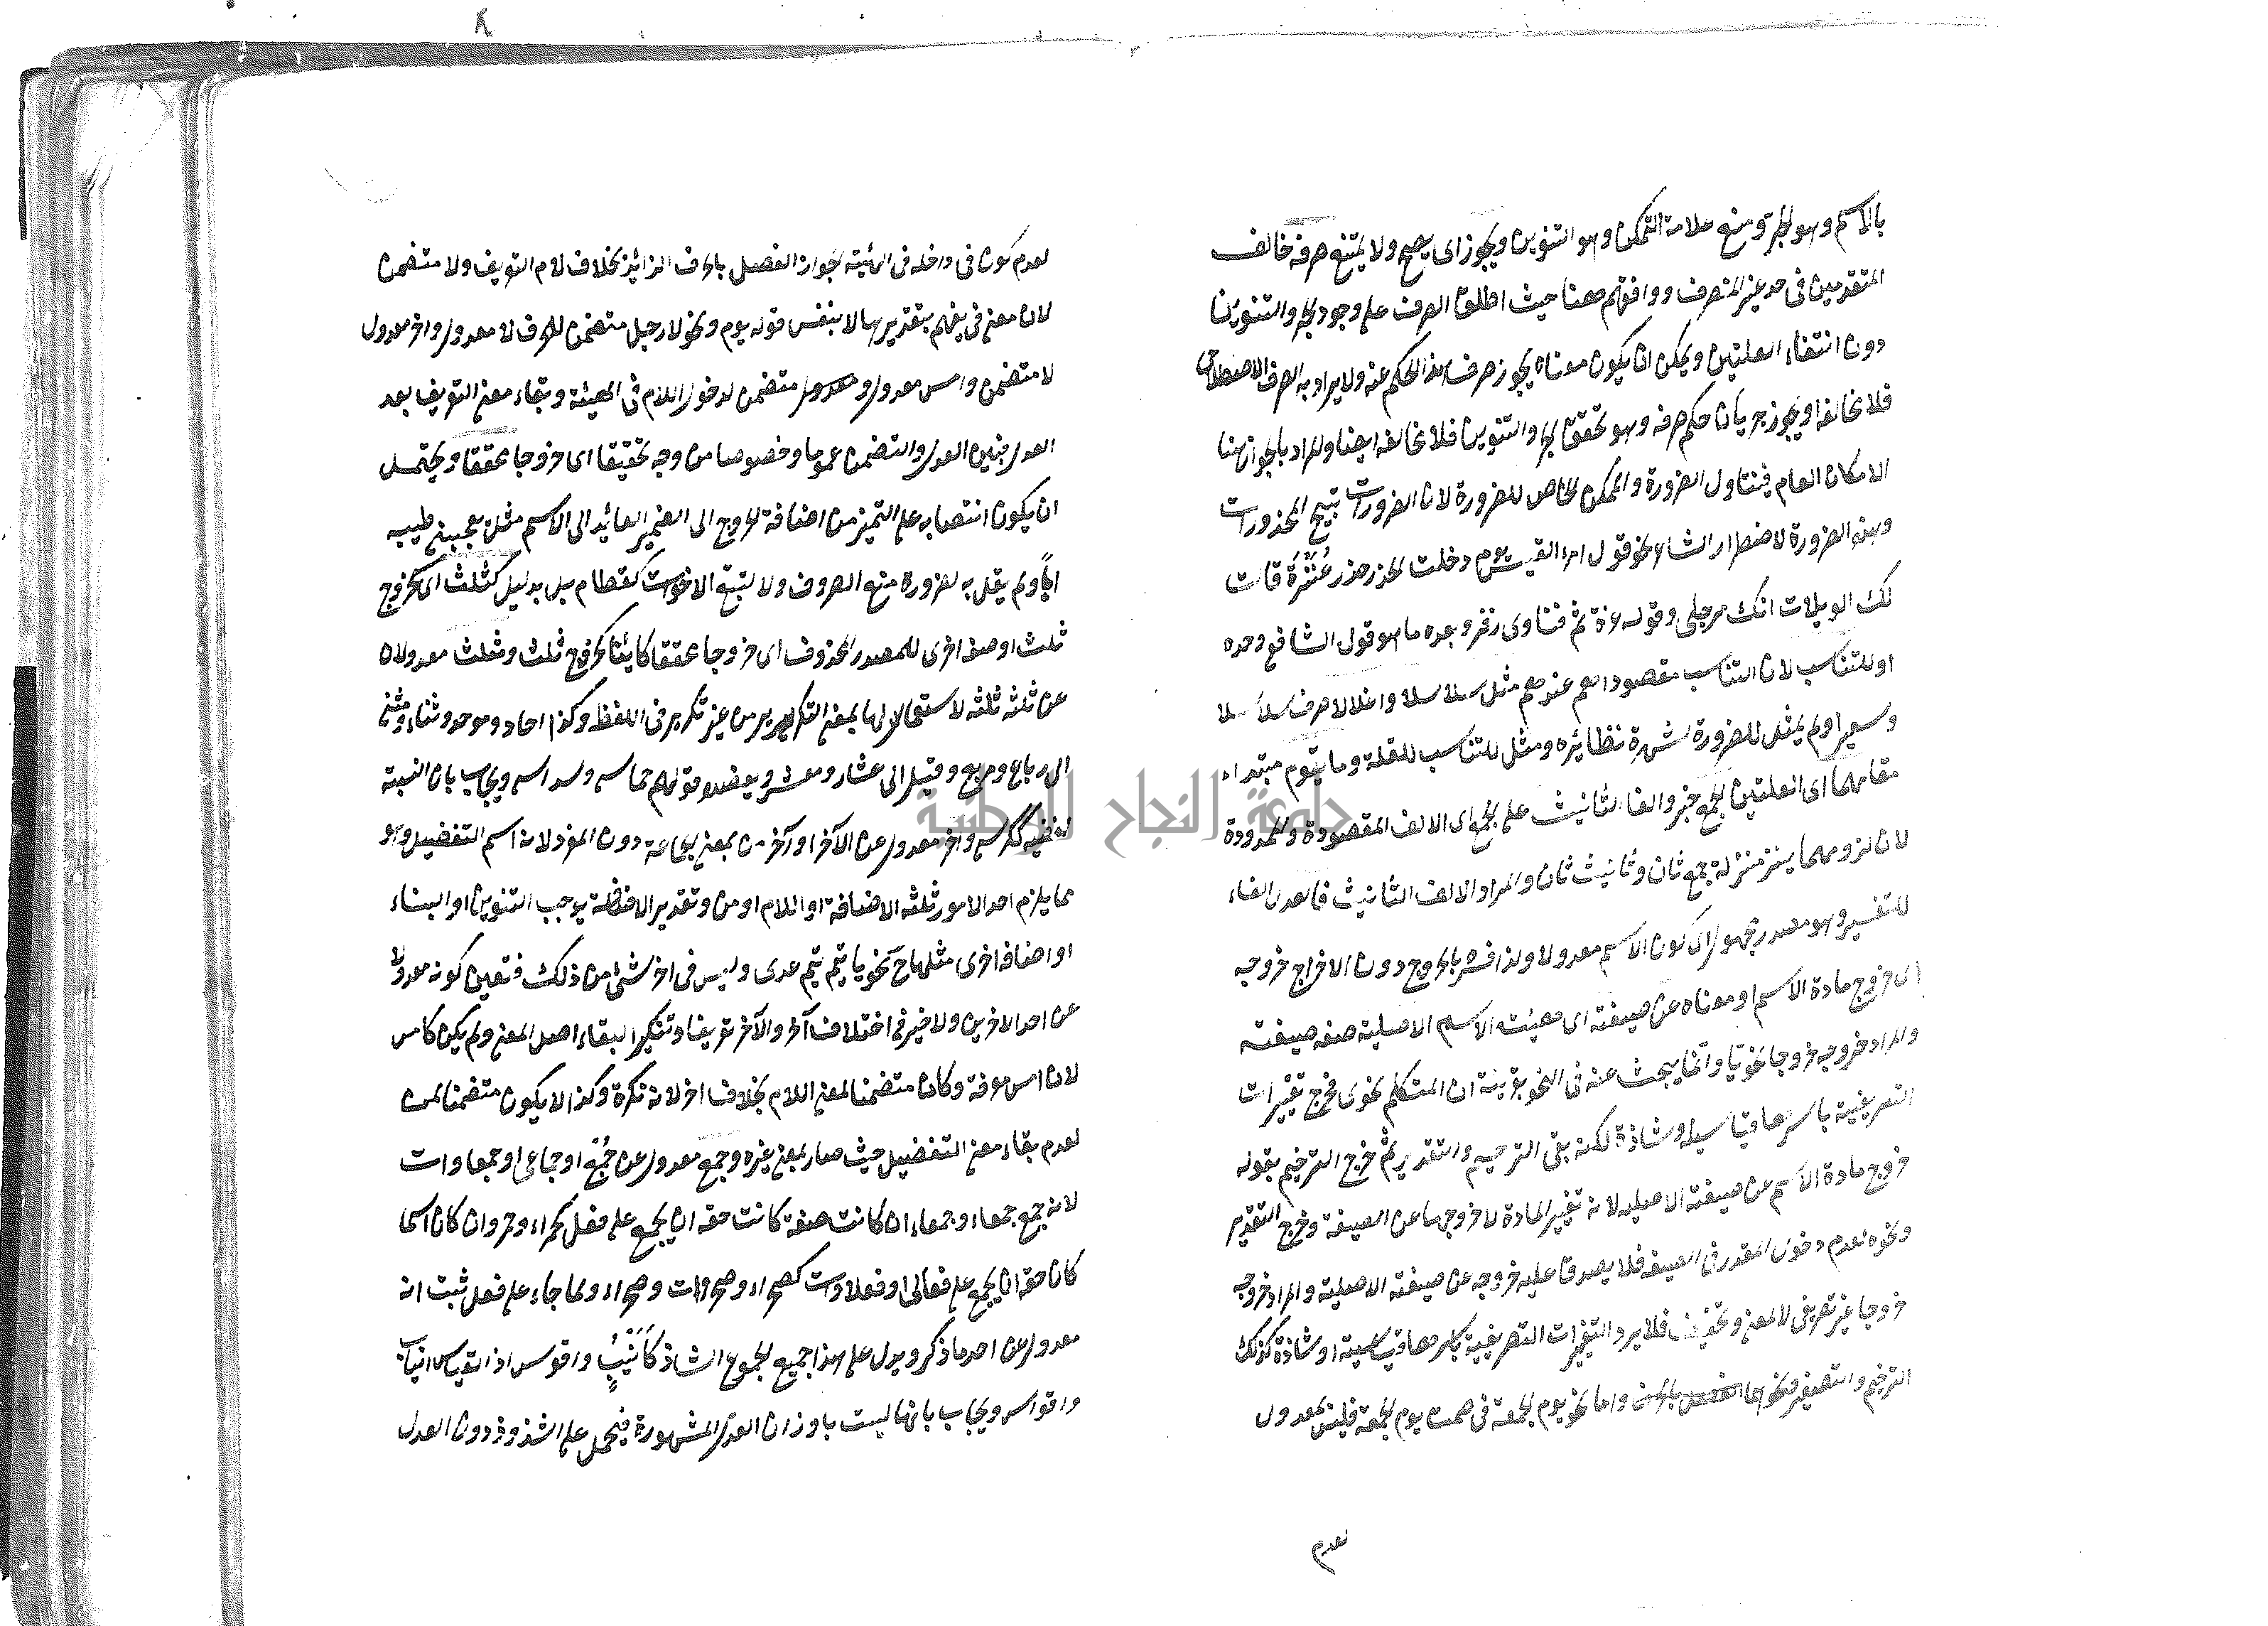 بالاسم وهو الجر ومنع علامة التمكن وهو التنوين ويجوز اى يصح ولا يمتنع صرفه خالف
المتقدمين فى حد غير المنصرف ووافقهم ههنا حيث اطلق الصرف على وجود الجر والتنوين
دون انتفاء العلتين ويمكن ان يكون معناه يجوز صرف هذا الحكم عنه ولا يراد به الصرف الاصطلاحى
فلا مخالفة او يجوز جريان حكم صرفه وهو تحقق الجر والتنوين فلا مخالفة ايضا والمراد بالجواز ههنا
الامكان العام فيتناول الضرورة والممكن الخاص للضرورة لان الضرورات تبيح المحذورات
وهذه الضرورة لاضطرار الشاعر نحو قول امرء القيس ويوم دخلت الخدر خدر عُنَيْزَةٍ فقالت
لك الويلات انك مرجلى وقوله ثم فناوى زفر وبعده ما هو قول الشافع وحده
او للتناسب لان التناسب مقصود مهم عندهم مثل سلاسلا واغلالا صرف سلاسلا
وسعيرا ولم يمثل للضرورة لشهرة نظائره ومثل للتناسب للقلة وما يقوم مبتداء
مقامهما اى العلتين الجمع خبر والفا التانيث على الجمع اى الالف المقصورة والممدودة
لان لزومهما ينزل منزلة جمع ثان وتانيث ثان والمراد الالف التانيث فالعدل الفاء
للتفسير وهو مصدر مجهول اى كون الاسم معدولا ولذا فسر بالخروج دون الاخراج خروجه
اى خروج مادة الاسم او معناه عن صيغته اى هيئت الاسم الاصلية صفة صيغته
والمراد خروجه خروجا نحويا وانما يبحث عنه فى النحو بقرينة ان المتكلم نحوى فخرج تغيرات
التصريفية باسرها قياسية وشاذة لكنه بقى الترخيم والتقدير ثم خرج الترخيم بقوله
خروج مادة الاسم عن صيغته الاصلية لانه تغيير المادة لا خروجها عن الصيغة وخرج التقدير
ونحوه لعدم دخول المقدر فى الصيغة فلا يصدق عليه خروجه عن صيغته الاصلية والمراد خروجه
خروجا غير تصريفى لا لمعنى وتخفيف فلا يرد التغيرات التصريفية باسرها قياسية او شاذة كذلك
الترخيم والتصغير ونحوهما واما نحو يوم الجمعة فى صمت يوم الجمعة فليس بمعدول
لعدم
لعدم كون فى داخله فى الهيئة لجواز الفصل بالحرف الزائد بخلاف لام التعريف ولا متضمن
لان معنى فى يفهم بتقديرها لا بنفس قوله يوم ونحو لا رجل متضمن للحرف لا معدول واخر معدول
لا متضمن وامس معدول ومتضمن لدخول اللام فى الهيئة وبقاء معنى التعريف بعد
العدل فبين العدل والتضمن عموما وخصوصا من وجه تحقيقا اى خروجا محققا ويحتمل
ان يكون انتصابه على التميز من اضافة الخروج الى الضمير العائد الى الاسم مثل يعجبنى طيبه
اباً ولم يقل به لضرورة منع الصروف ولا لتبتع الاخوات كقطام بل بدليل كثلث اى كخروج
ثلث او صفة اخرى للمصدر المحذوف اى خروجا محققا كائنا كخروج ثلث ومثلث معدولان
عن ثلثة ثلثة لاستعمالها بمعنى التكرير من غير تكرير فى اللفظ وكذا احاد وموحد وثناء ومثنى
الى رباع ومربع وقيل الى عشار ومعشر ويعضده قولهم خماسى وسداسى ويجاب بان النسبة
لفظية ككرسى واخر معدول عن الآخر او آخر من بمعنى الجماعة دون المفرد لانه اسم التفضيل وهو
مما يلزم احد الامور ثلثة الاضافة او اللام او من وتقدير الاضافة يوجب التنوين او البناء
او اضافة اخرى مثلها نحو يا تيم تيم عدى وليس فى اخر شئ من ذلك فتعين كونه معدولا
عن احد الاخرين ولا ضير فى اختلاف آخر والآخر تعريفا وتنكيرا لبقاء اصل المعنى ولم يكن كامس
لان امس معرفة وكان متضمنا لمعنى اللام بخلاف اخر لانه نكرة وكذا لا يكون متضمنا لمن
لعدم بقاء معنى التفضيل حيث صار بمعنى غيره وجمع معدول عن جُمْعٍ او جماعى او جمعاوات
لانه جمع جمعاء وجمعاء ان كانت صفة كانت حقه ان يجمع على فعل كحمراء وحمر وان كان اسما
كان حقه ان يجمع على فعالى او فعلاوات كصحراء وصحراوات وصحراء ولما جاء على فعل ثبت انه
معدول عن احد ما ذكر ويدل على هذا جميع الجموع الشاذ كَأَنْيُبٍ واقوس اذ القياس انياب
واقواس ويجاب بانها ليست باوزان العدل المشهورة فيحمل على الشذوذ دون العدل
جامعة النجاح الوطنية